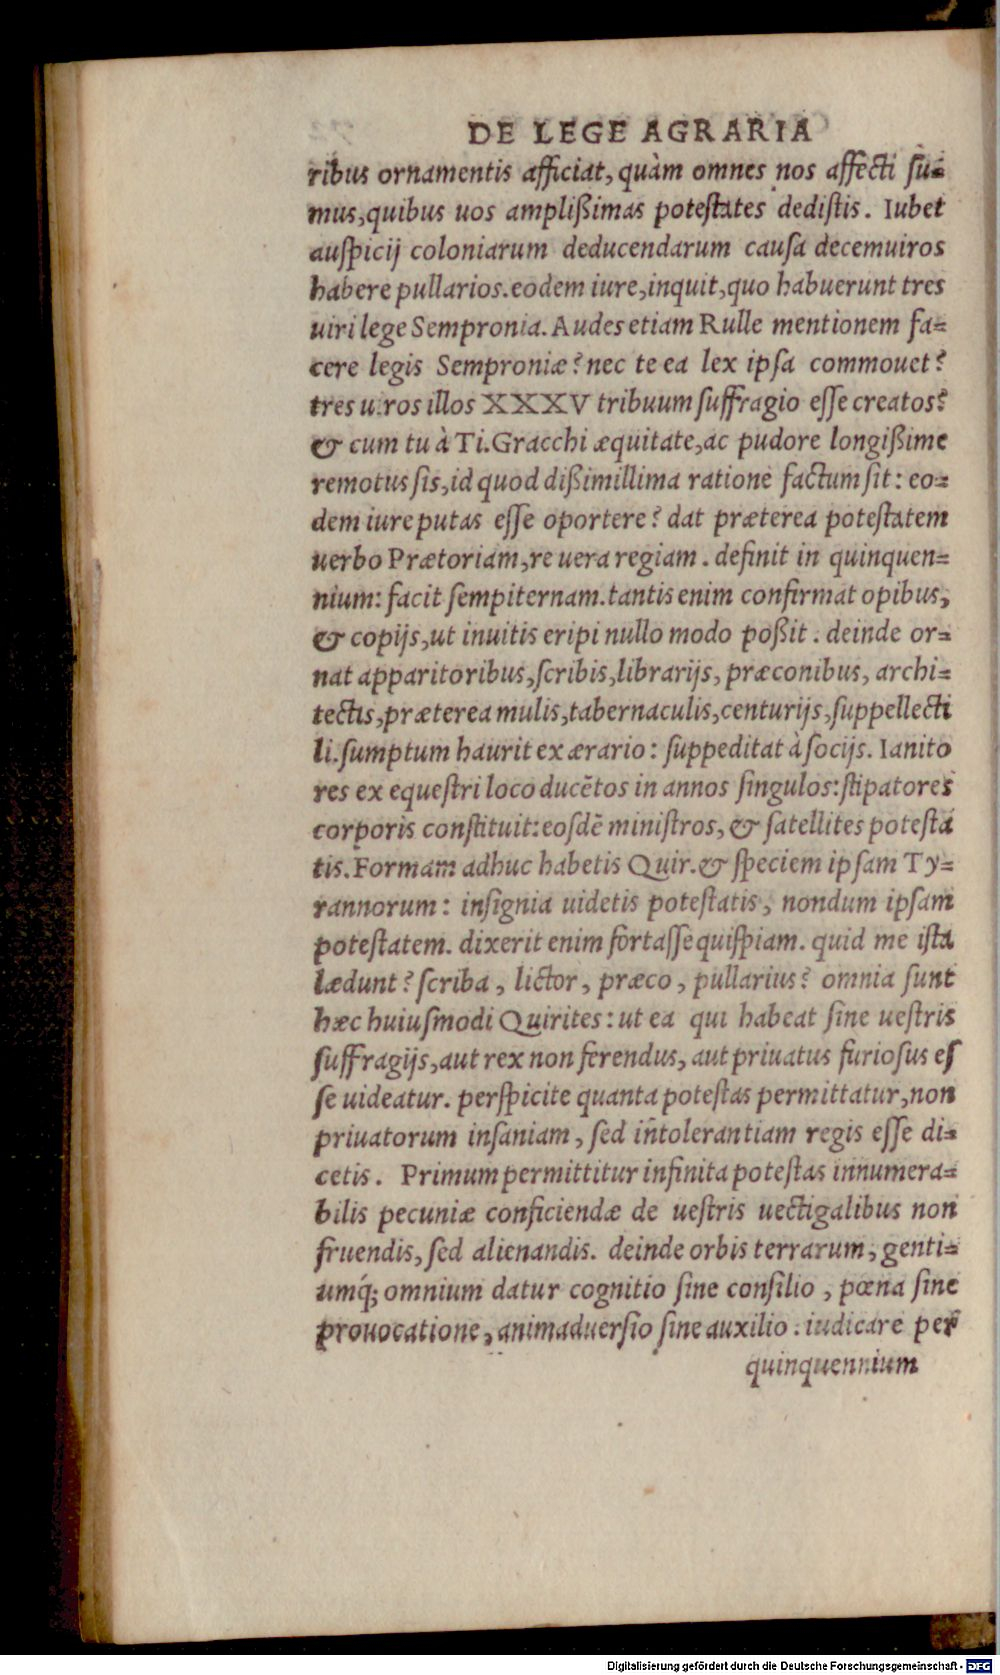 DE LEGE AGRARIA
ribus ornamentis afficiat, quàm omnes nos affecti su-
mus, quibus uos amplißimas potestates dedistis. Iubet
auspicij coloniarum deducendarum causa decemuiros
habere pullarios. eodem iure, inquit, quo habuerunt tres
uiri lege Sempronia. Audes etiam Rulle mentionem fa-
cere legis Semproniæ? nec te ea lex ipsa commouet?
tres u.ros illos XXXV tribuum suffragio esse creatos?
& cum tu à Ti. Gracchi æquitate, ac pudore longißime
remotus sis, id quod dißimillima ratione factum sit: eo-
dem iure putas esse oportere? dat præterea potestatem
uerbo Prætoriam, re uera regiam. definit in quinquen-
nium: facit sempiternam. tantis enim confirmat opibus,
& copijs, ut inuitis eripi nullo modo poßit. deinde or-
nat apparitoribus, scribis, librarijs, præconibus, archi-
tectis, præterea mulis, tabernaculis, centurijs, suppellecti
li. sumptum haurit ex ærario: suppeditat à socijs. Ianito
res ex equestri loco ducētos in annos singulos: stipatores
corporis constituit: eosdē ministros, & satellites potesta
tis. Formam adhuc habetis Quir. & speciem ipsam Ty-
rannorum: insignia uidetis potestatis, nondum ipsam
potestatem. dixerit enim fortasse quispiam. quid me ista
lædunt? scriba, lictor, præco, pullarius? omnia sunt
hæc huiusmodi Quirites: ut ea qui habeat sine uestris
suffragijs, aut rex non ferendus, aut priuatus furiosus es
se uideatur. perspicite quanta potestas permittatur, non
priuatorum insaniam, sed intolerantiam regis esse di-
cetis. Primum permittitur infinita potestas innumera-
bilis pecuniæ conficiendæ de uestris uectigalibus non
fruendis, sed alienandis. deinde orbis terrarum, genti-
umq́; omnium datur cognitio sine consilio, pœna sine
prouocatione, animaduersio sine auxilio. iudicare per
quinquennium
Digitalisierung gefördert durch die Deutsche Forschungsgemeinschaft - DFG